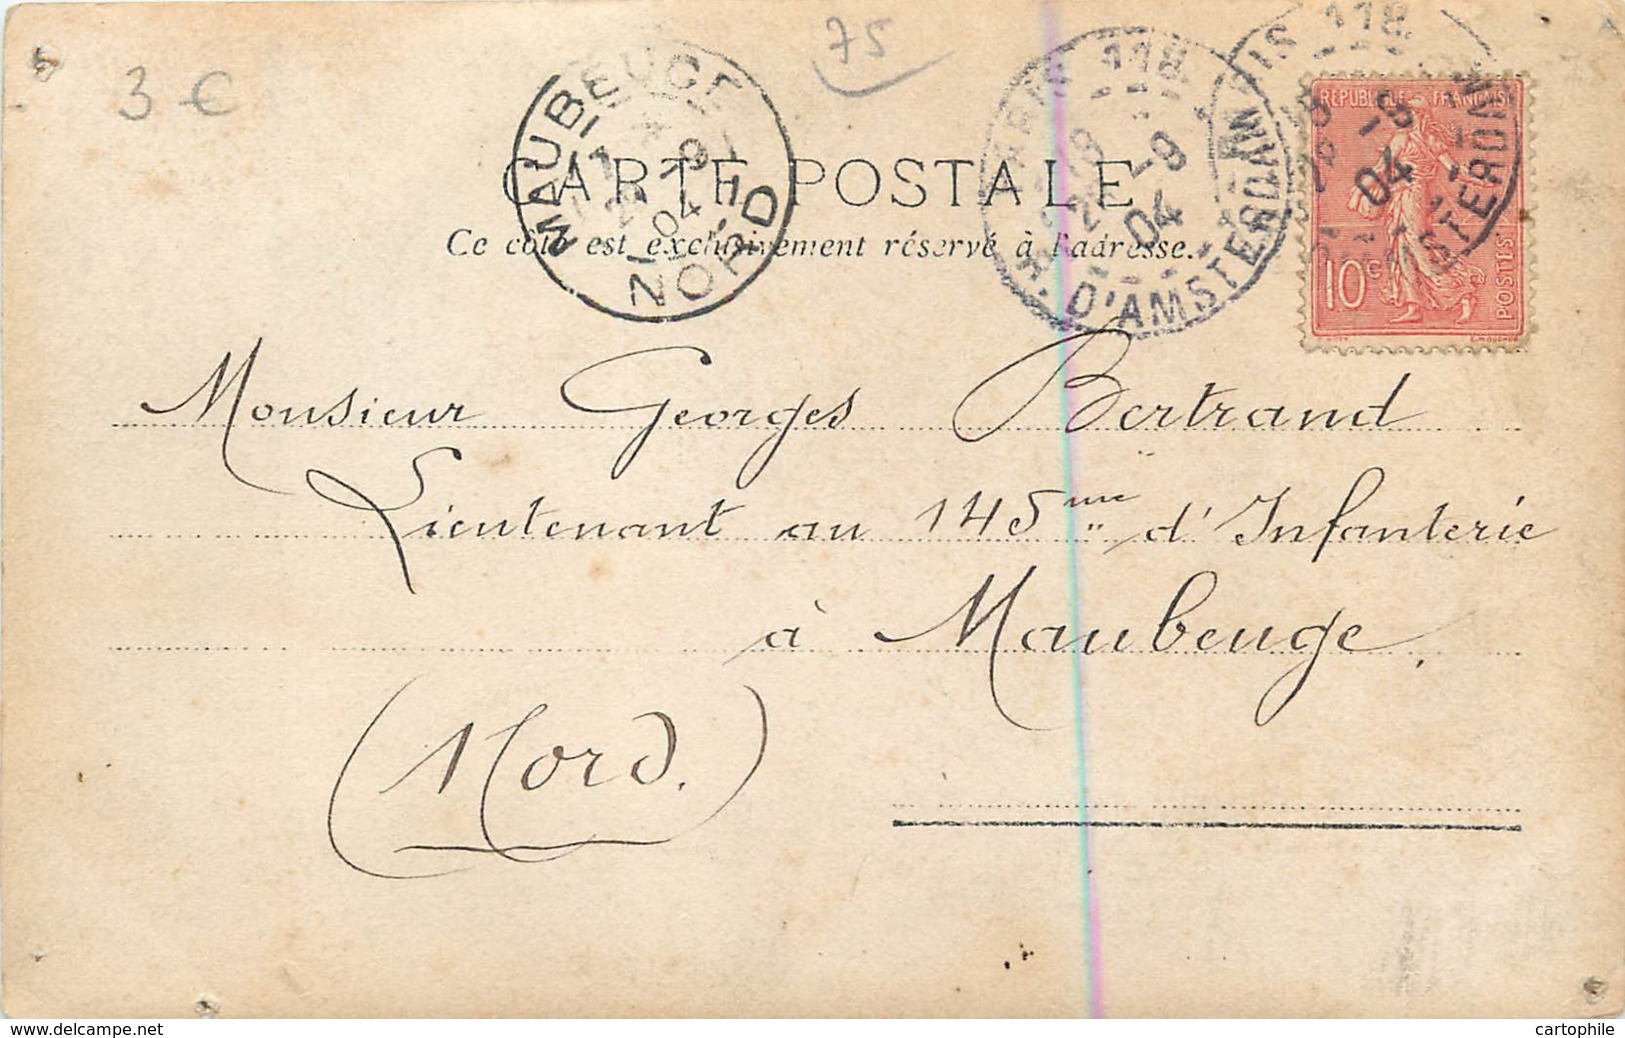 75
3 €
MAUBEUGE
NORD
PARIS 118
R. D'AMSTERDAM
04
REPUBLIQUE FRANÇAISE
10 c
POSTES
CARTE POSTALE
Ce côté est exclusivement réservé à l'adresse.
Monsieur Georges Bertrand
Lieutenant au 145me d'Infanterie
à Maubeuge.
(Nord.)
www.delcampe.net
cartophile